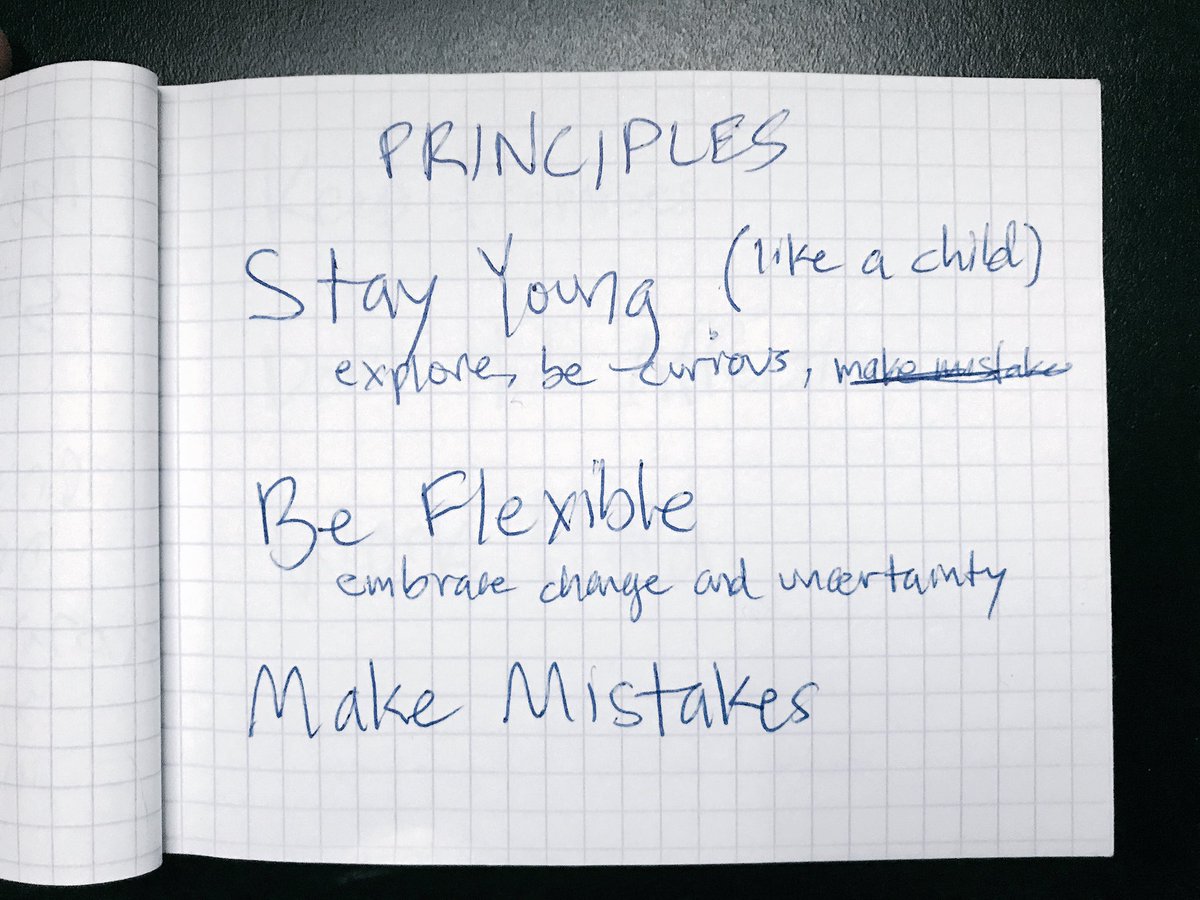 PRINCIPLES
Stay Young (like a child)
explore, be curious, make mistake
Be Flexible
embrace change and uncertainty
Make Mistakes